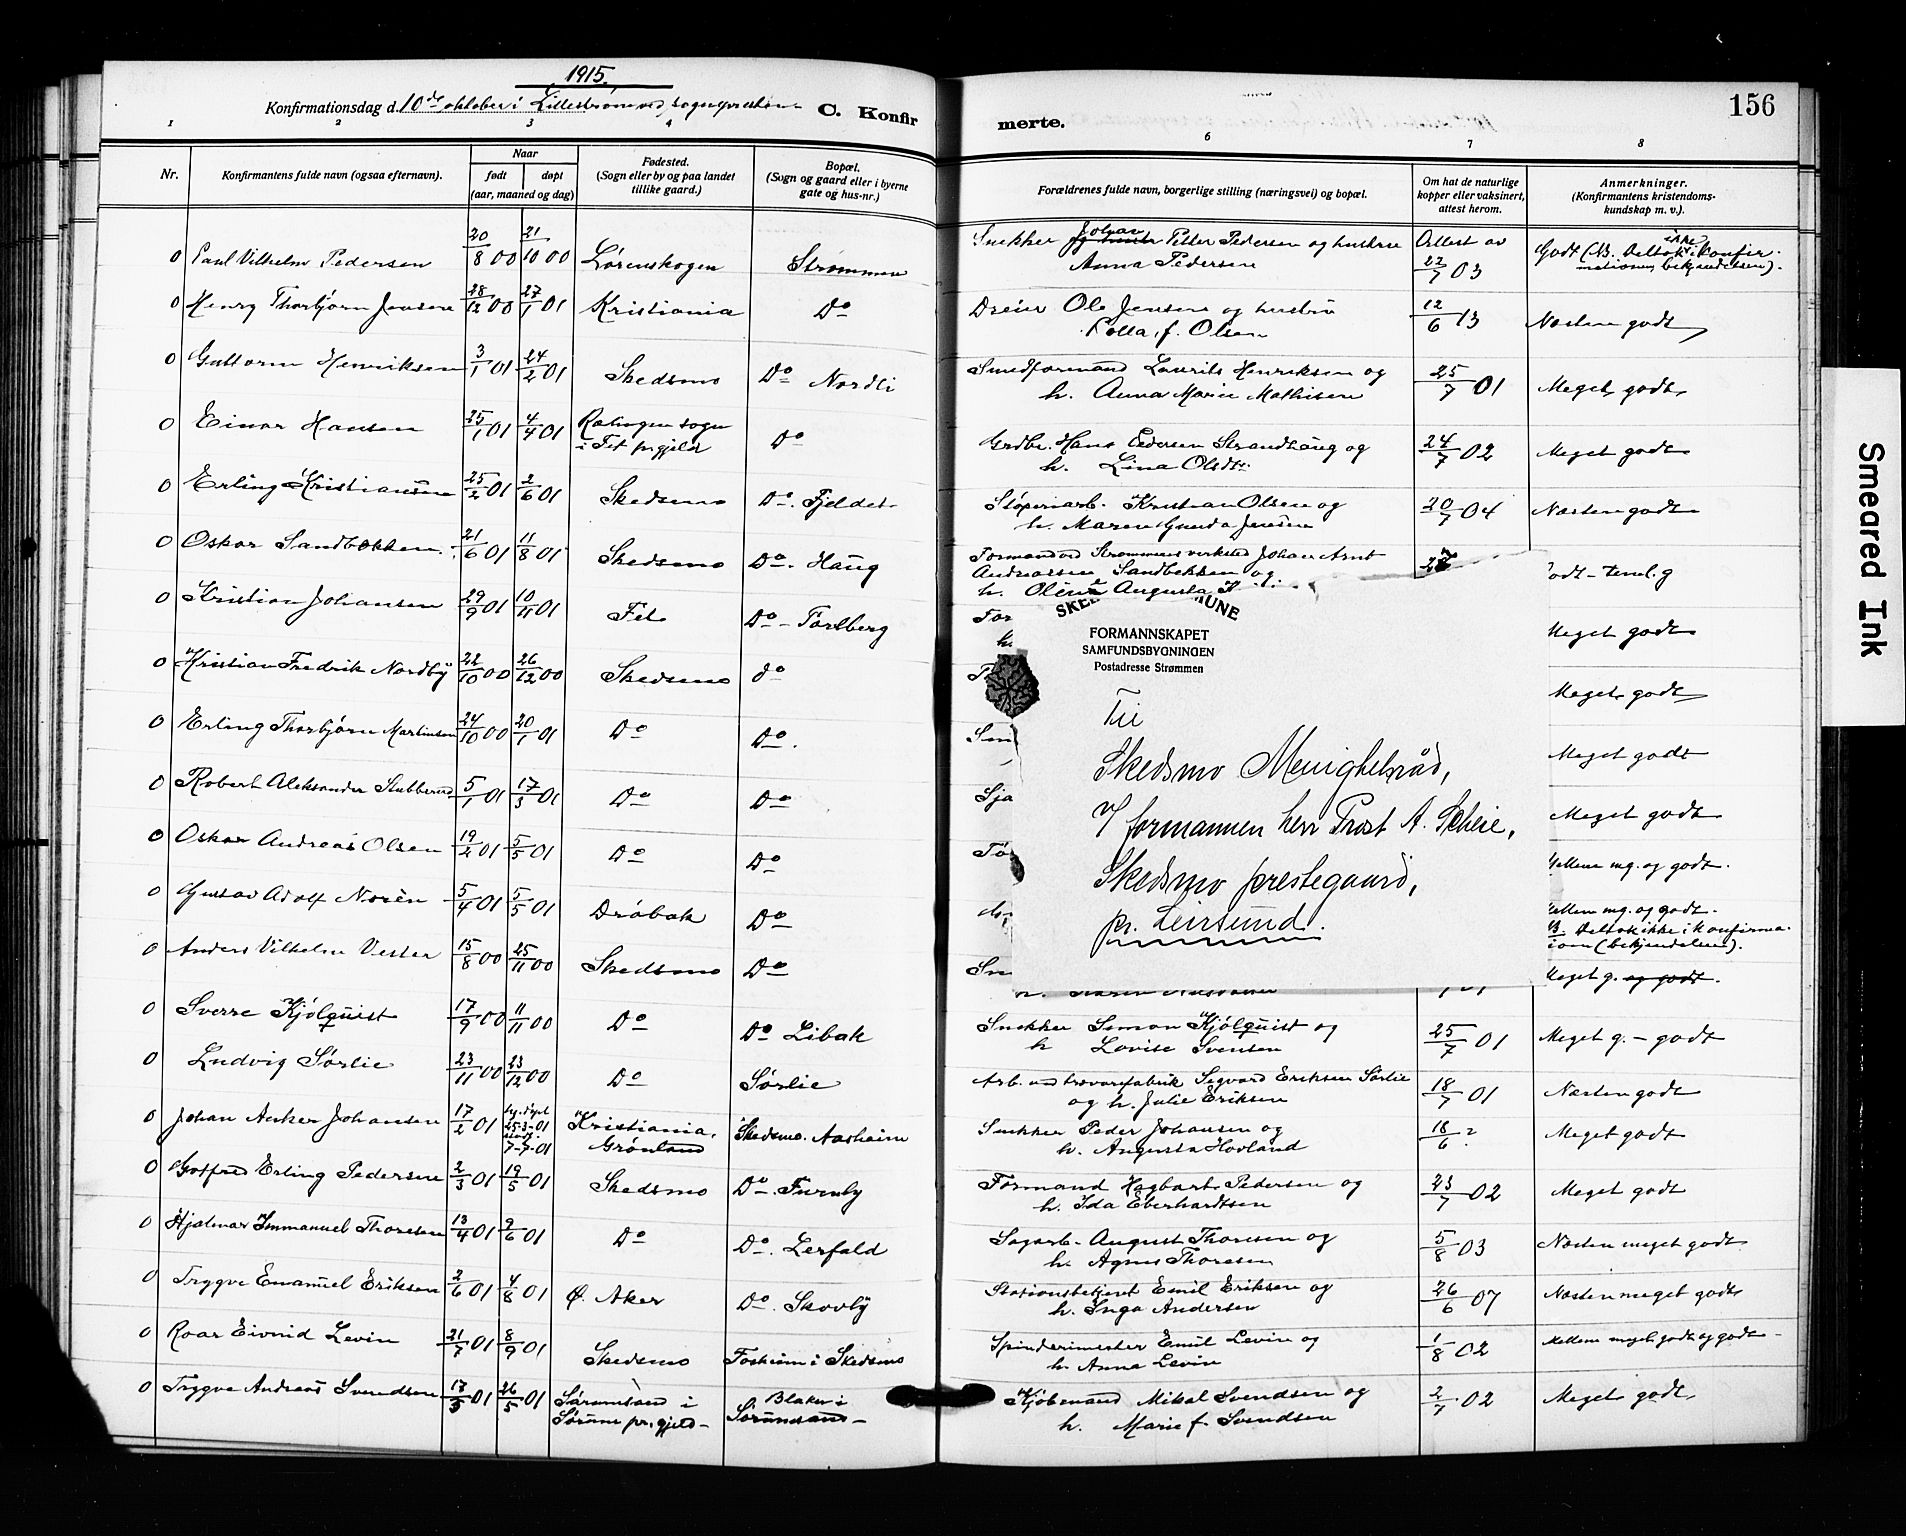 1915.
Konfirmationsdag d. 10de oktober i Lillestrøm ved sognepresten
C. Konfirmerte.
156
1 2 3 4 6 7 8
Nr.
Konfirmantens fulde navn (ogsaa efternavn).
Naar
født
døpt
(aar, maaned og dag)
Fødested.
(Sogn eller by og paa landet
tillike gaard.)
Bopæl.
(Sogn og gaard eller i byerne
gate og hus-nr.)
Forældrenes fulde navn, borgerlige stilling (næringsvei) og bopæl.
Om hat de naturlige
kopper eller vaksinert,
attest herom.
Anmerkninger.
(Konfirmantens kristendoms-
kundskap m. v.).
0 Paul Vilhelm Pedersen 20/8 00 21/10 00 Lørenskogen Strømmen Snekker Johan Petter Pedersen og hustru Attest av Godt (NB. Deltok ikke i konfir-
Anna Pedersen 22/7 03 mationen bekjendelsen).
0 Henry Thorbjørn Jensen 28/12 00 27/1 01 Kristiania Do Dreier Ole Jensen og hustru 12/6 13 Næsten godt
f. Olsen
0 Guttorm Henriksen 3/1 01 24/2 01 Skedsmo Do Nordli Smedformand Laurits Henriksen og 25/7 01 Meget godt
h. Anna Marie Mathisen
0 Einar Hansen 25/1 01 4/4 01 Rælingen sogn Do Grdbr. Hans Pedersen Strandhaug og 24/7 02 Meget godt
i Fet pr.gjeld h. Lina Olsdtr.
0 Erling Kristiansen 25/2 01 2/6 01 Skedsmo Do. Fjeldet Støperiarb. Kristian Olsen og 20/7 04 Næsten godt
h. Maren Gunda Jensen
0 Oskar Sandbekken 21/6 01 11/8 01 Skedsmo Do. Haug Formand ved Strømmens verksted Johan Arnt
Andreassen Sandbekken og
h. Oline Augusta
0 Kristian Johansen 29/9 01 10/11 01 Fet Do - Torlberg For Meget godt
h.
0 Kristian Fredrik Nordby 22/10 00 26/12 00 Skedsmo do Meget godt
0 Erling Thorbjørn Martinsen 24/10 00 20/1 01 Do Do. Meget godt
0 Robert Aleksander Stubberud 5/1 01 17/3 01 Do Do Sja Meget godt
0 Oskar Andreas Olsen 19/2 01 5/5 01 Do Do Mellem mg. og godt.
0 Gustav Adolf Norèn 5/4 01 5/5 01 Drøbak Do Mellem mg. og godt.
NB. Deltok ikke i konfirma-
tion (bekjendelsen).
0 Anders Vilhelm Vester 15/8 00 25/11 00 Skedsmo Do Sne Meget g. og godt.
SKE UNE
FORMANNSKAPET
SAMFUNDSBYGNINGEN
Postadresse Strømmen
Til
Skedsmo Menighetsråd,
v/ formannen herr Prost A. Scheie,
Skedsmo prestegaard,
pr. Leirsund.
0 Sverre Kjølquist 17/9 00 11/11 00 Do Do Libak Snekker Simon Kjølquist og 25/7 01 Meget g. - godt
h Lovise Svensen
0 Ludvig Sørlie 23/11 00 23/12 00 Do Sørlie Arb. ved trævarefabrik Sigvard Eriksen Sørlie 18/7 01 Næsten godt
og h. Julie Eriksen
0 Johan Anker Johansen 17/2 01 hj.døpt 25-3-01 7-7-01 Kristiania, Skedsmo. Aasheim Snekker Peder Johansen og 18/6 ? Meget godt
Grønland h. Augusta Hovland
0 Gotfred Erling Pedersen 2/3 01 19/5 01 Skedsmo Do. Furuly Formand Hagbart Pedersen og 23/7 02 Meget godt
h. Ida Eberhardtsen
0 Hjalmar Immanuel Thoresen 13/4 01 9/6 01 Do Do. Lerfald Sagarb. August Thoresen og 5/8 03 Næsten meget godt
h. Agnes Thoresen
0 Trygve Emanuel Eriksen 2/6 01 4/8 01 Ø. Aker Do. Skovly Stationsbetjent Emil Eriksen og 26/6 07 Næsten meget godt
h. Inga Andersen
0 Roar Eivind Levin 21/7 01 8/9 01 Skedsmo Fosheim i Skedsmo Spinderimester Emil Levin og 1/8 02 Mellem meget godt og godt
h. Anna Levin
0 Trygve Andreas Svendsen 17/3 01 26/5 01 Sørumsand i Blaker i Kjøbmand Mikal Svendsen og 2/7 02 Meget godt
Sørum pr.gjeld Sørumsand h. Marie f. Svendsen
Smeared Ink